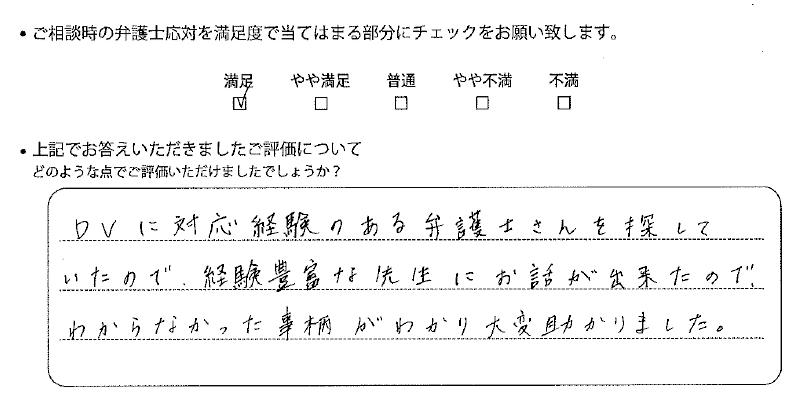 • ご相談時の弁護士応対を満足度で当てはまる部分にチェックをお願い致します。
満足 やや満足 普通 やや不満 不満
☑ ☐ ☐ ☐ ☐
• 上記でお答えいただきましたご評価について
どのような点でご評価いただけましたでしょうか？
DVに対応経験のある弁護士さんを探して
いたので、経験豊富な先生にお話が出来たので、
わからなかった事柄がわかり大変助かりました。